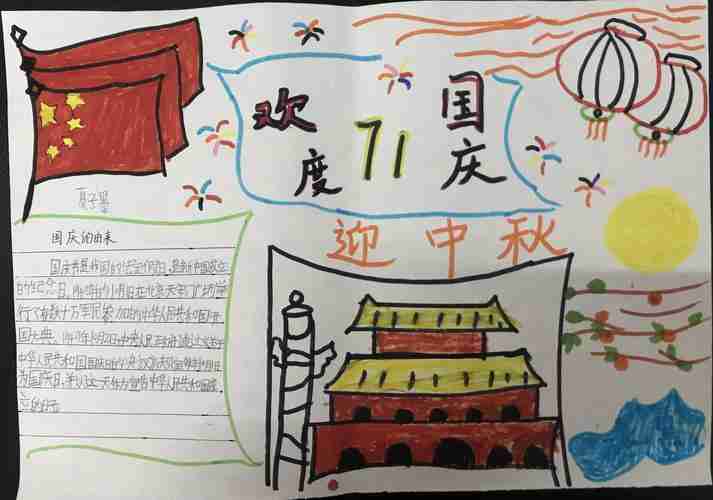 欢度
71
国庆
迎中秋
国庆的由来
国庆节是我国的法定假日,是新中国成立
的纪念日,1949年10月1日在北京天安门广场举
行了有数十万军民参加的中华人民共和国开
国大典。中央人民政府通过
中华人民共和国国庆日的决议10月1日
为国庆日,并以这一天作为宣告中华人民共和国成
的日子